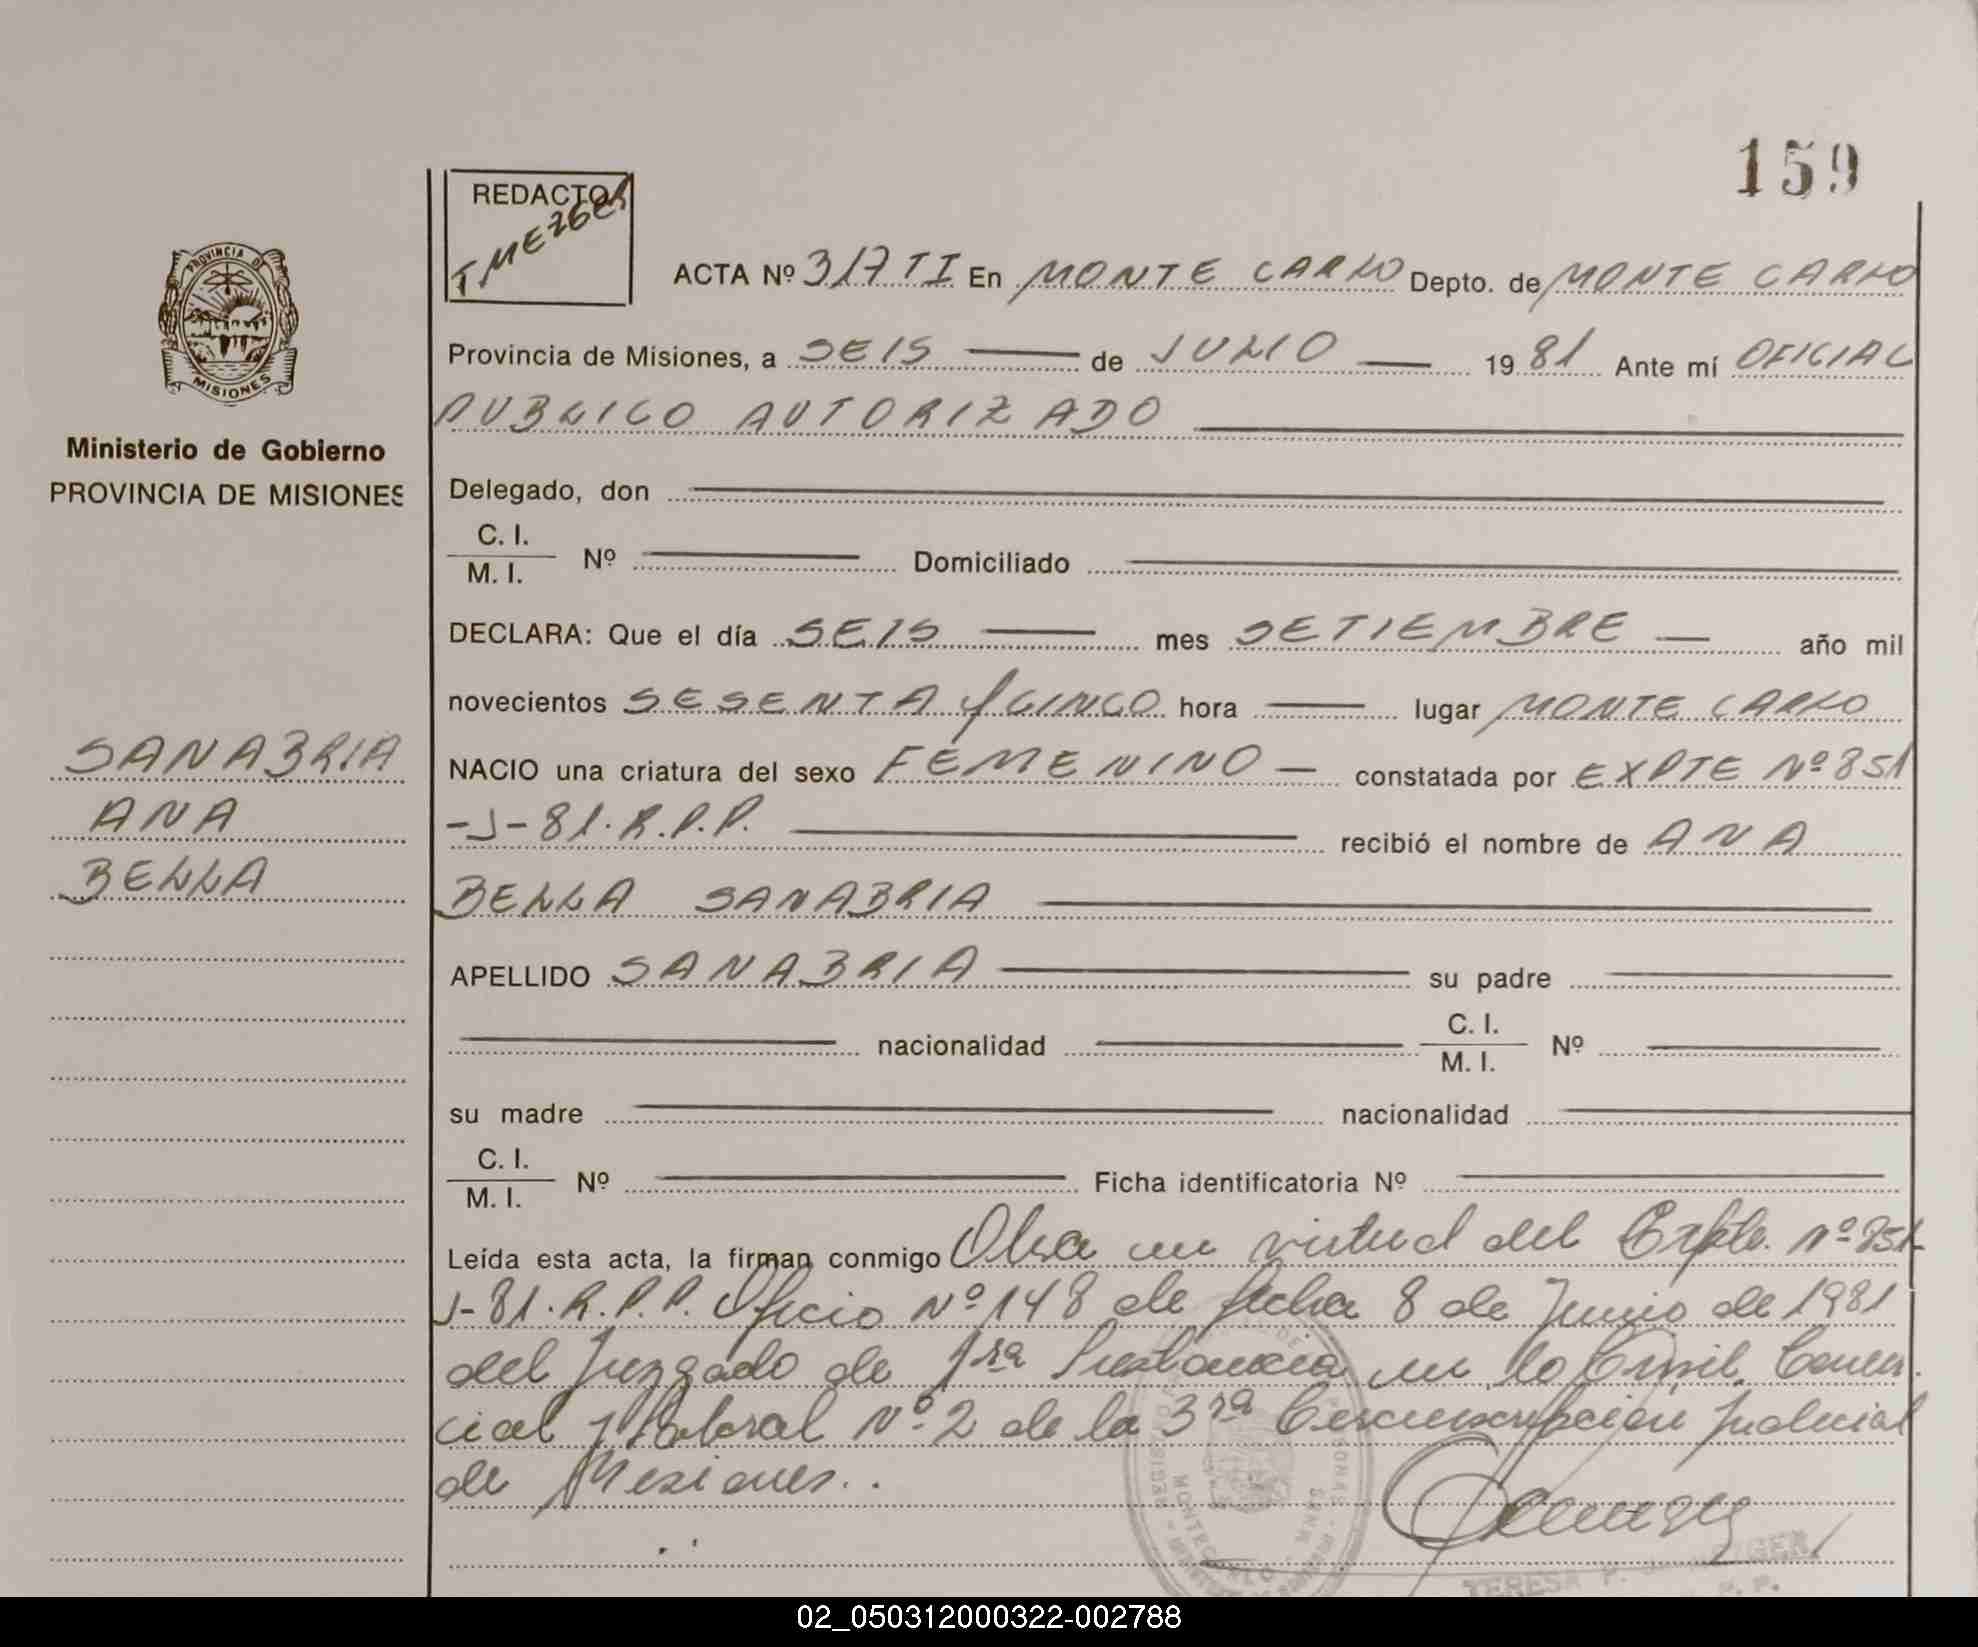 159
REDACTO
T MEZGER
PROVINCIA DE
MISIONES
ACTA Nº 317 TI En MONTE CARLO Depto. de MONTE CARLO
Provincia de Misiones, a SEIS de JULIO 1981 Ante mí OFICIAL
PUBLICO AUTORIZADO
Ministerio de Gobierno
PROVINCIA DE MISIONES
Delegado, don
C. I.
M. I. Nº Domiciliado
DECLARA: Que el día SEIS mes SETIEMBRE año mil
novecientos SESENTA Y CINCO hora lugar MONTE CARLO
SANABRIA
ANA
BELLA
NACIO una criatura del sexo FEMENINO constatada por EXPTE Nº 851
-J-81.R.P.P. recibió el nombre de ANA
BELLA SANABRIA
APELLIDO SANABRIA su padre
nacionalidad C. I.
M. I. Nº
su madre nacionalidad
C. I.
M. I. Nº Ficha identificatoria Nº
Leída esta acta, la firman conmigo Obra en virtud del Expte. Nº 851-
J-81.R.P.P. Oficio Nº 148 de fecha 8 de Junio de 1981
del Juzgado de 1ra Instancia en lo Civil, Comer.
cial y Laboral Nº 2 de la 3ra Circunscripción Judicial
de Misiones..
MONTECARLO
TERESA P.
02_050312000322-002788